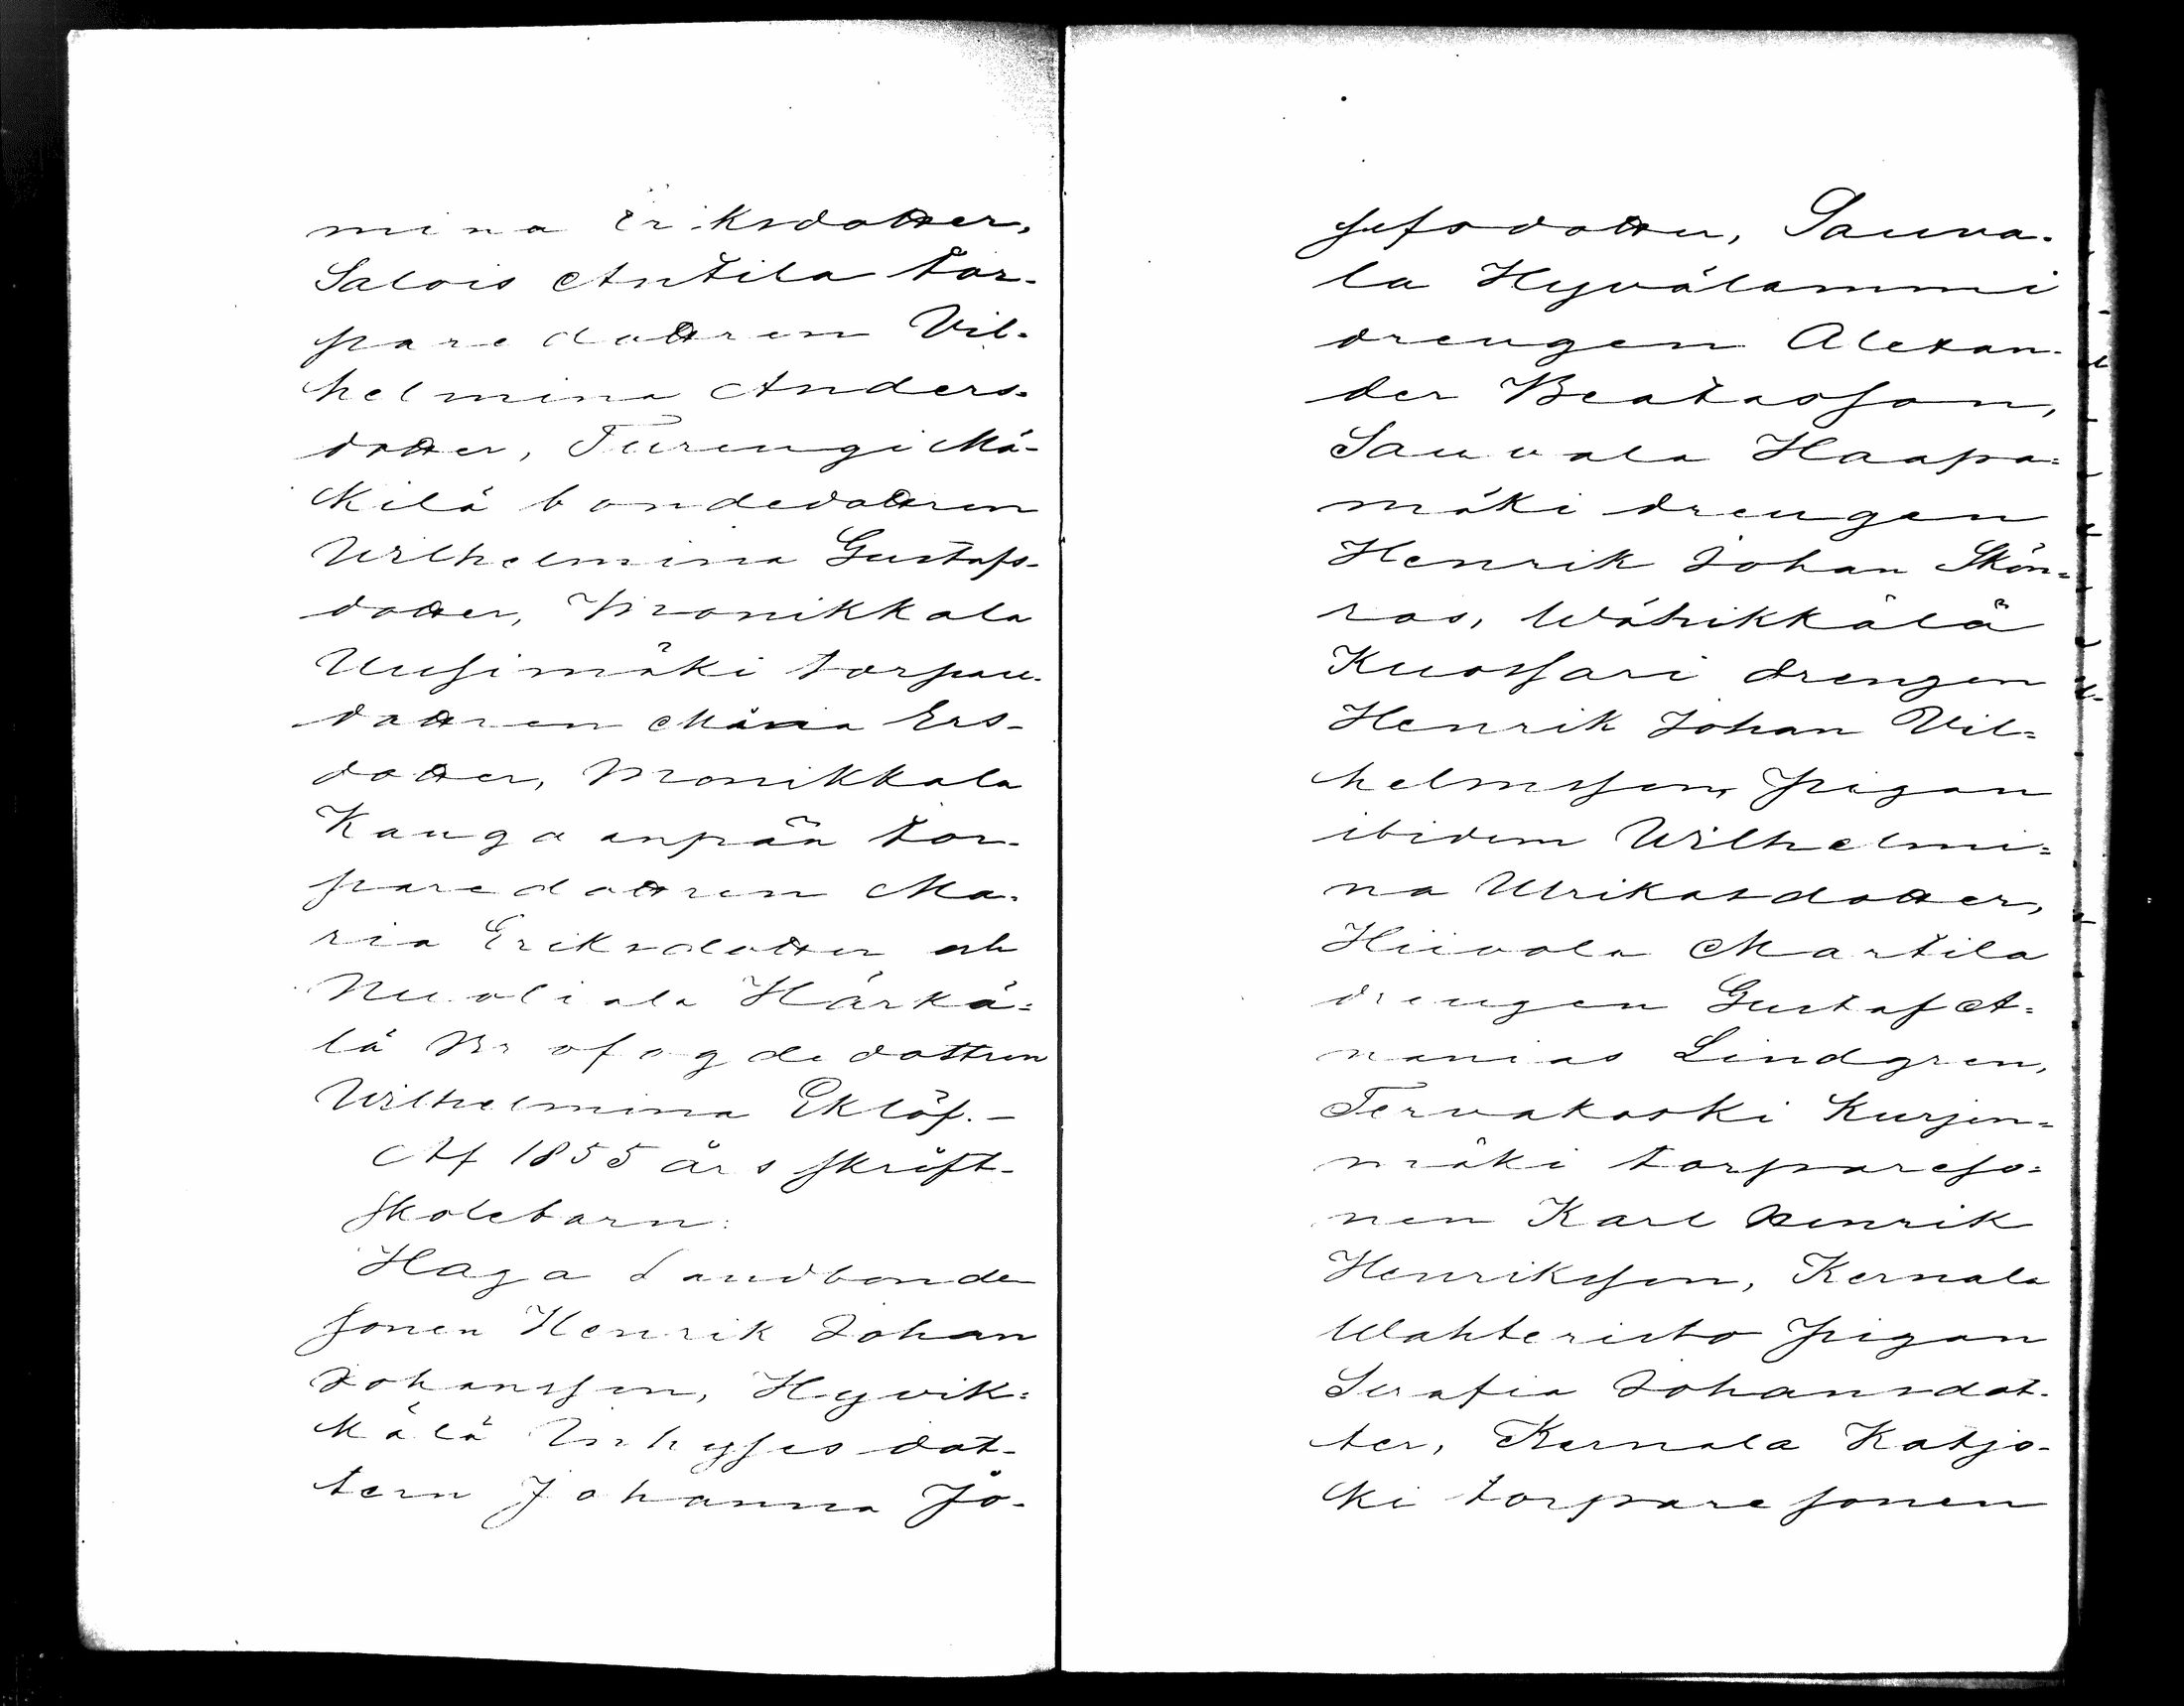 mina Eriksdotter,
Salois Antila tor-
paredottren Vil-
helmina Anders-
dotter, Turengi Mä-
kilä bondedottren
Wilhelmina Gustafs-
dotter, Monikkala
Uusimäki torpare-
dottren Maria Ers-
dotter, Monikkala
Kangaanpää tor-
paredottren Ma-
ria Eriksdotter och
Nuoliala Härkä=
lä Brofogdedottren
Wilhelmina Eklöf.-
Af 1855 års skrift-
skolebarn:
Haga Landbonde
sonen Henrik Johan
Johansson, Hyvik=
kälä Inhyses dot-
tern Johanna Jo-
sefsdotter, Sauva-
la Hyvälammi
drengen Alexan-
der Beatasson,
Sauvala Haapa=
mäki drengen
Henrik Johan Skön=
ros, Wähikkälä
Kuossari drengen
Henrik Johan Vil=
helmsson, pigan
ibidem Wilhelmi=
na Ulrikasdotter,
Hiivola Martila
drengen Gustaf A=
nanias Lindgren,
Tervakoski Kurjen=
mäki torpareso=
nen Karl Henrik
Henriksson, Kernala
Wahteristo pigan
Serafia Johansdot-
ter, Kernala Katjo-
ki torparesonen